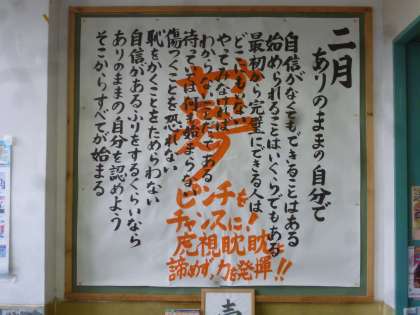 二月
ありのままの自分で
自信がなくてもできることはある
始められることはいくらでもある
最初から完璧にできる人は
どこにもいない
やってみなければ
わからないことだってある
待っていては何も始まらない
傷つくことを恐れない
恥をかくことをためらわない
自信があるふりをするくらいなら
ありのままの自分を認めよう
そこからすべてが始まる
ピンチを
チャンスに!
虎視眈眈と
諦めず、力を発揮!!